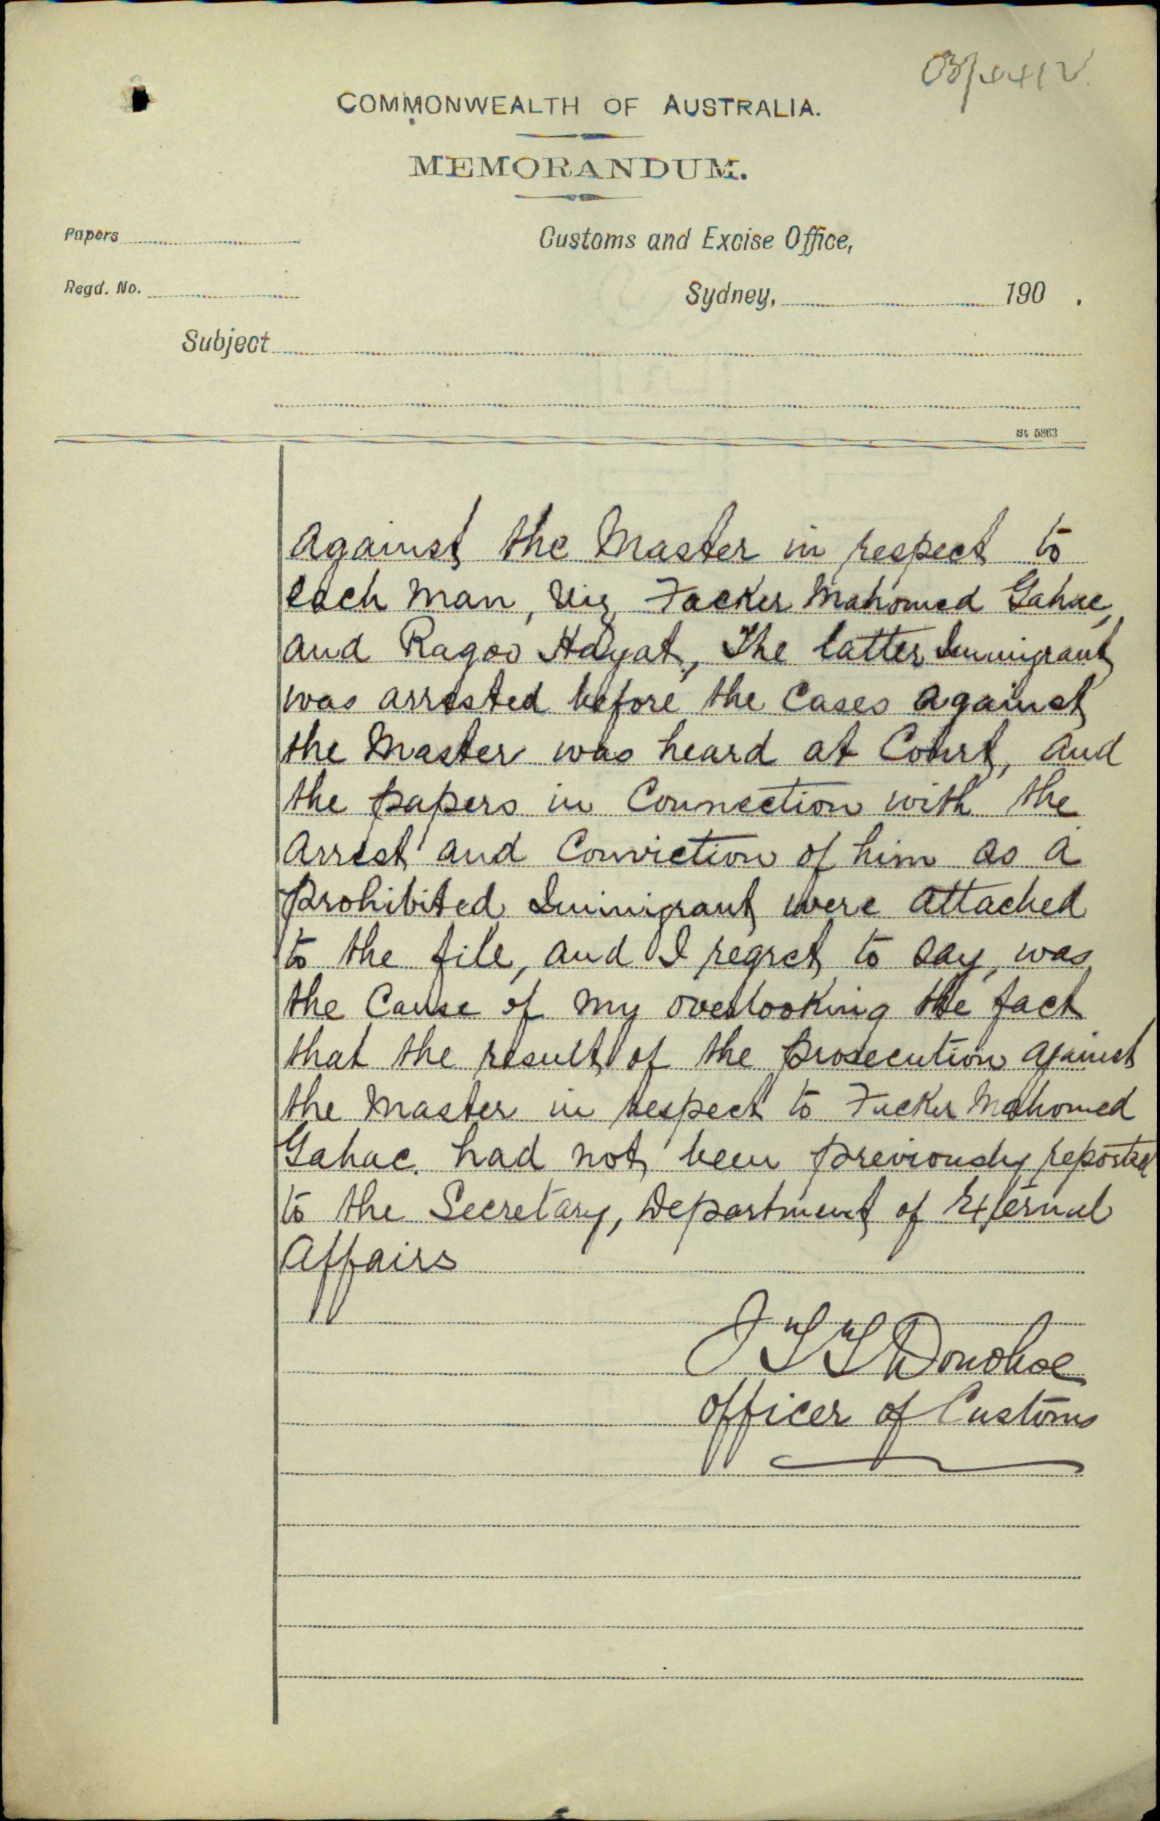 COMMONWEALTH OF AUSTRALIA.
MEMORANDUM.
Papers
Customs and Excise Office,
Regd. No.
Sydney, 190 .
Subject
St 5863
against the Master in respect to
each man, viz, Facker Mahomed Gahac,
and Ragoo Hayat, The latter Immigrant
was arrested before the Cases against
the Master was heard at Court, and
the papers in Connection with the
arrest and Conviction of him as a
prohibited Immigrant were attached
to the file, and I regret to say, was
the Cause of my overlooking the fact
that the result of the prosecution against
the Master in respect to Facker Mahomed
Gahac. had not been previously reported
to the Secretary, Department of External
Affairs
J T T Donohoe
Officer of Customs